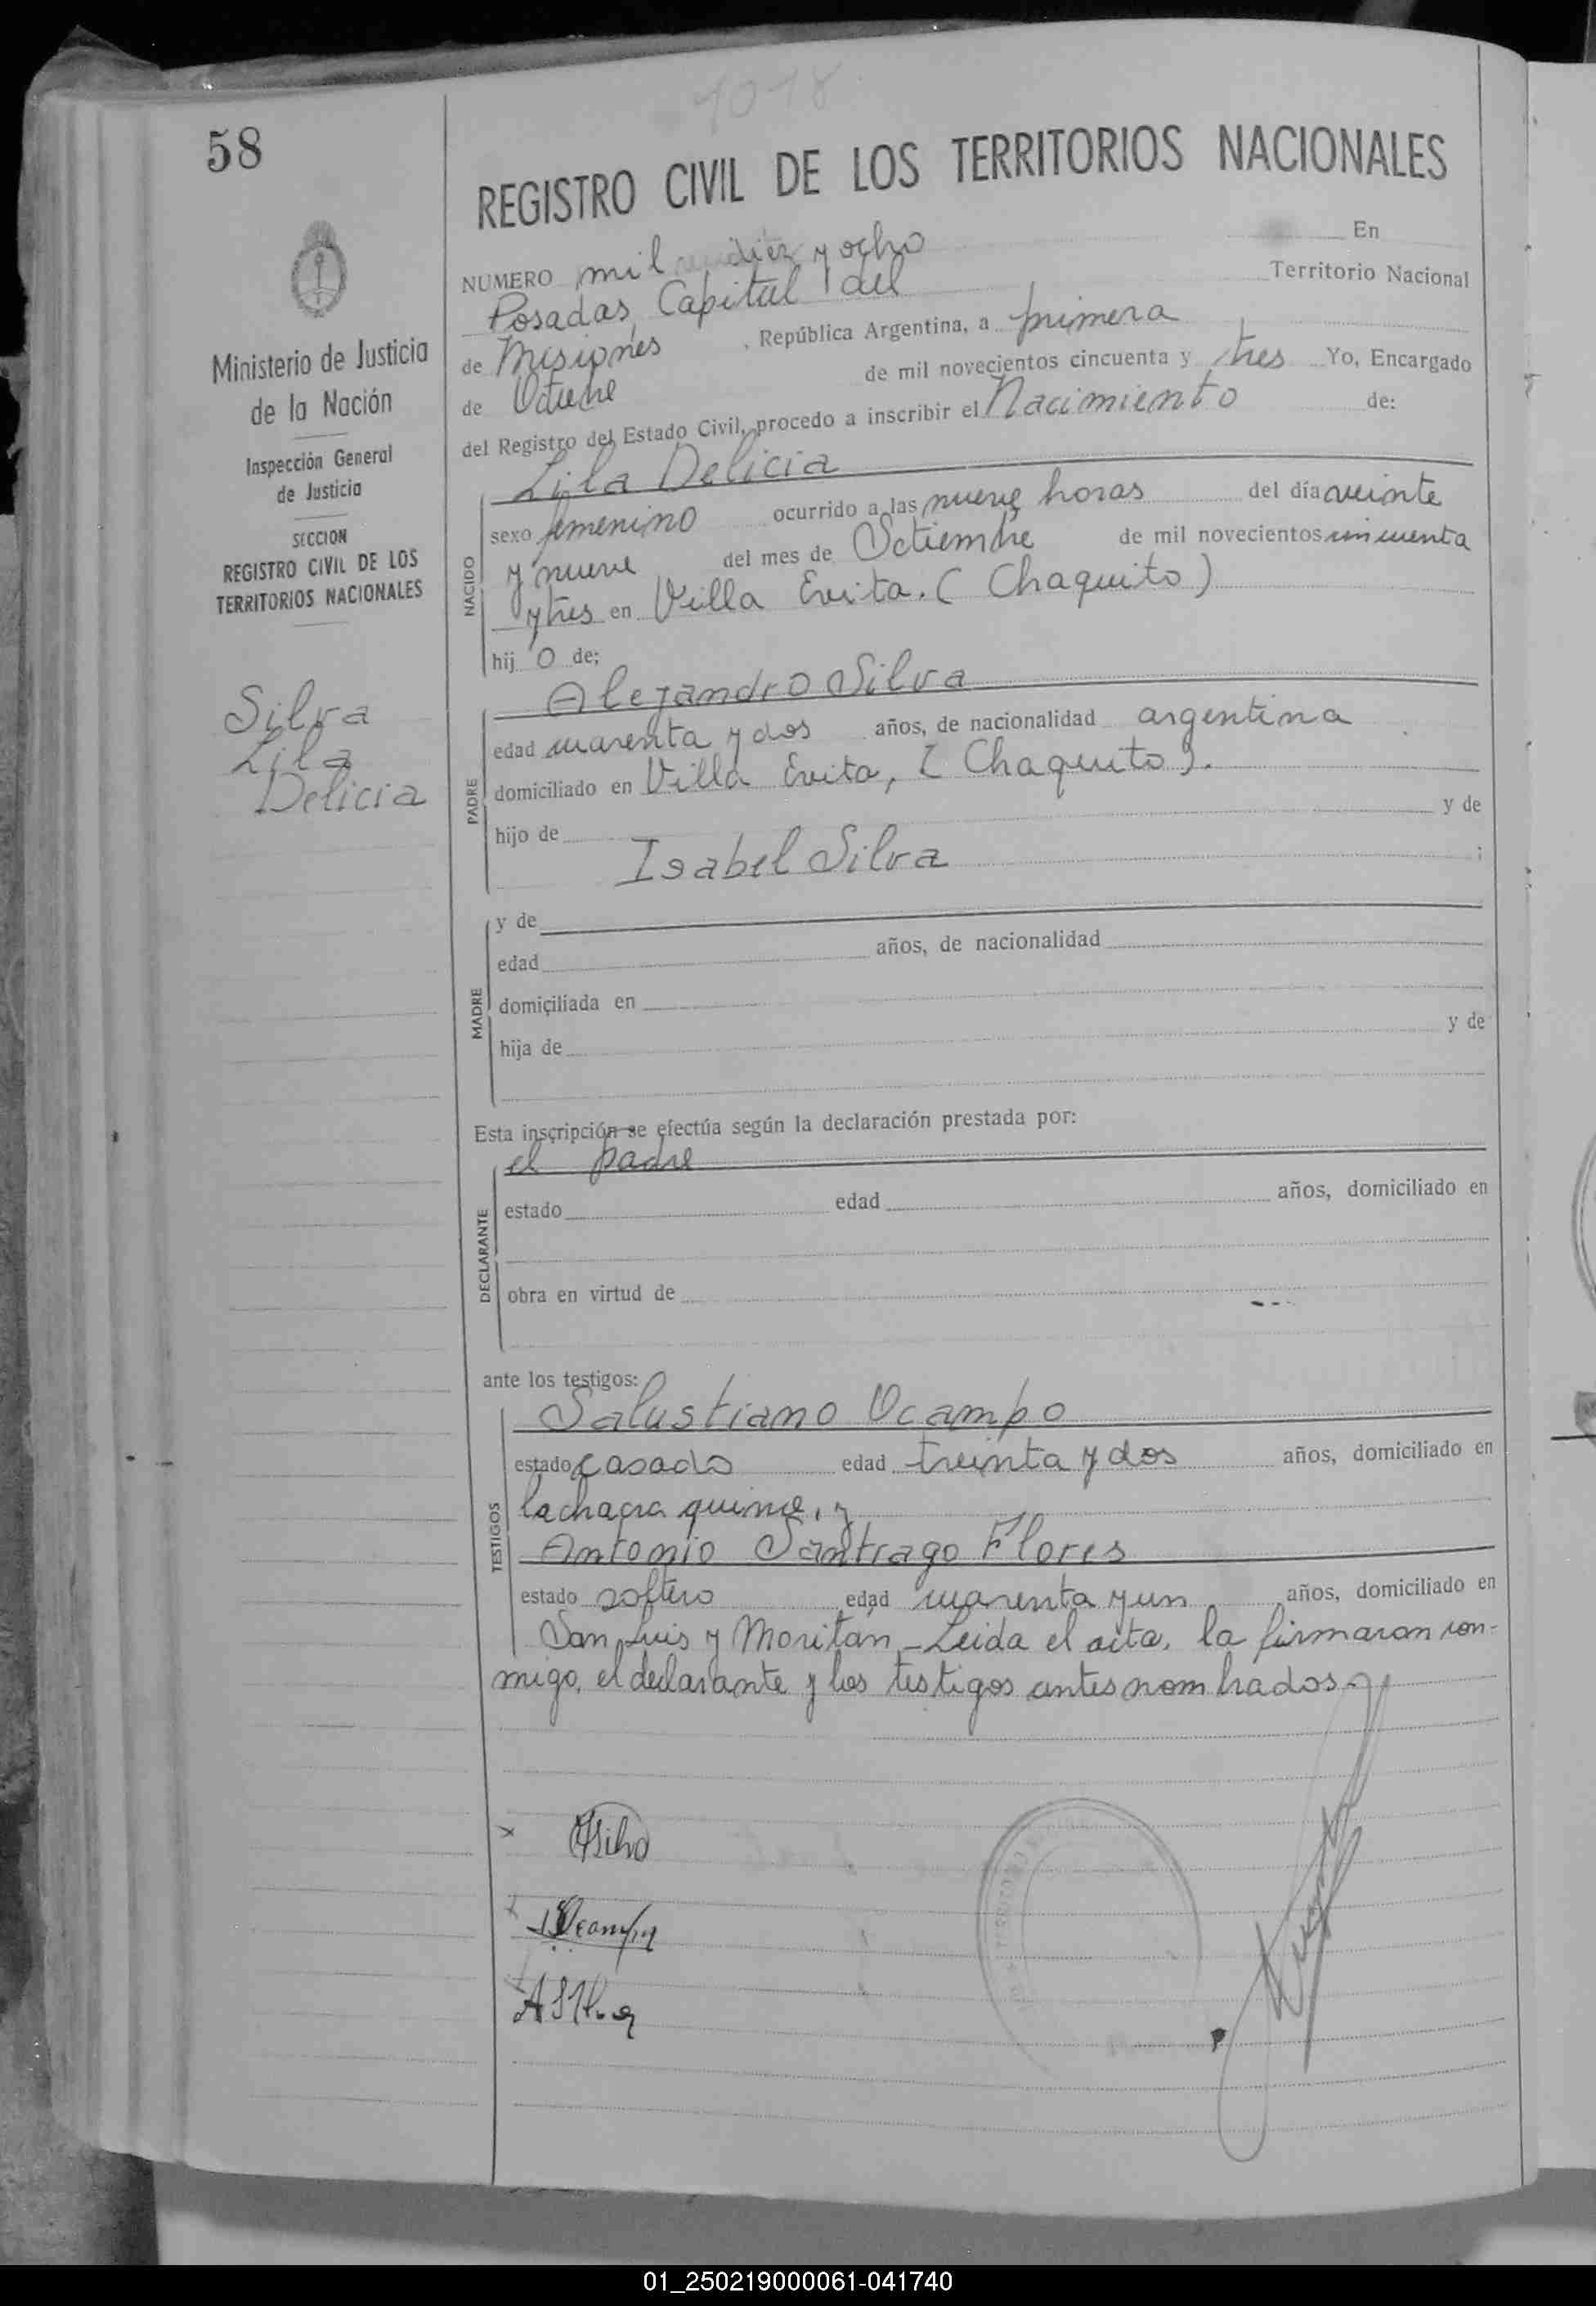 1018
58
REGISTRO CIVIL DE LOS TERRITORIOS NACIONALES
NUMERO mil diez y ocho En
Posadas, Capital del Territorio Nacional
de Misiones, República Argentina, a primera
de Octubre de mil novecientos cincuenta y tres Yo, Encargado
del Registro del Estado Civil, procedo a inscribir el Nacimiento de:
Lila Delicia
sexo femenino ocurrido a las nueve horas del día veinte
y nueve del mes de Setiembre de mil novecientos cincuenta
y tres en Villa Evita. (Chaquito)
hij o de;
NACIDO
Alejandro Silva
edad cuarenta y dos años, de nacionalidad argentina
domiciliado en Villa Evita, (Chaquito).
hijo de y de
Isabel Silva ;
PADRE
y de
edad años, de nacionalidad
domiciliada en
hija de y de
MADRE
Esta inscripción se efectúa según la declaración prestada por:
el padre
estado edad años, domiciliado en
obra en virtud de
DECLARANTE
ante los testigos:
Salustiano Ocampo
estado casado edad treinta y dos años, domiciliado en
la chacra quince, y
Antonio Santiago Flores
estado soltero edad cuarenta y un años, domiciliado en
San Luis y Moritán - Leida el acta, la firmaron con-
migo, el declarante y los testigos antes nombrados.
TESTIGOS
Ministerio de Justicia
de la Nación
Inspección General
de Justicia
SECCION
REGISTRO CIVIL DE LOS
TERRITORIOS NACIONALES
Silva
Lila
Delicia
ASilva
SOcampo
01_250219000061-041740